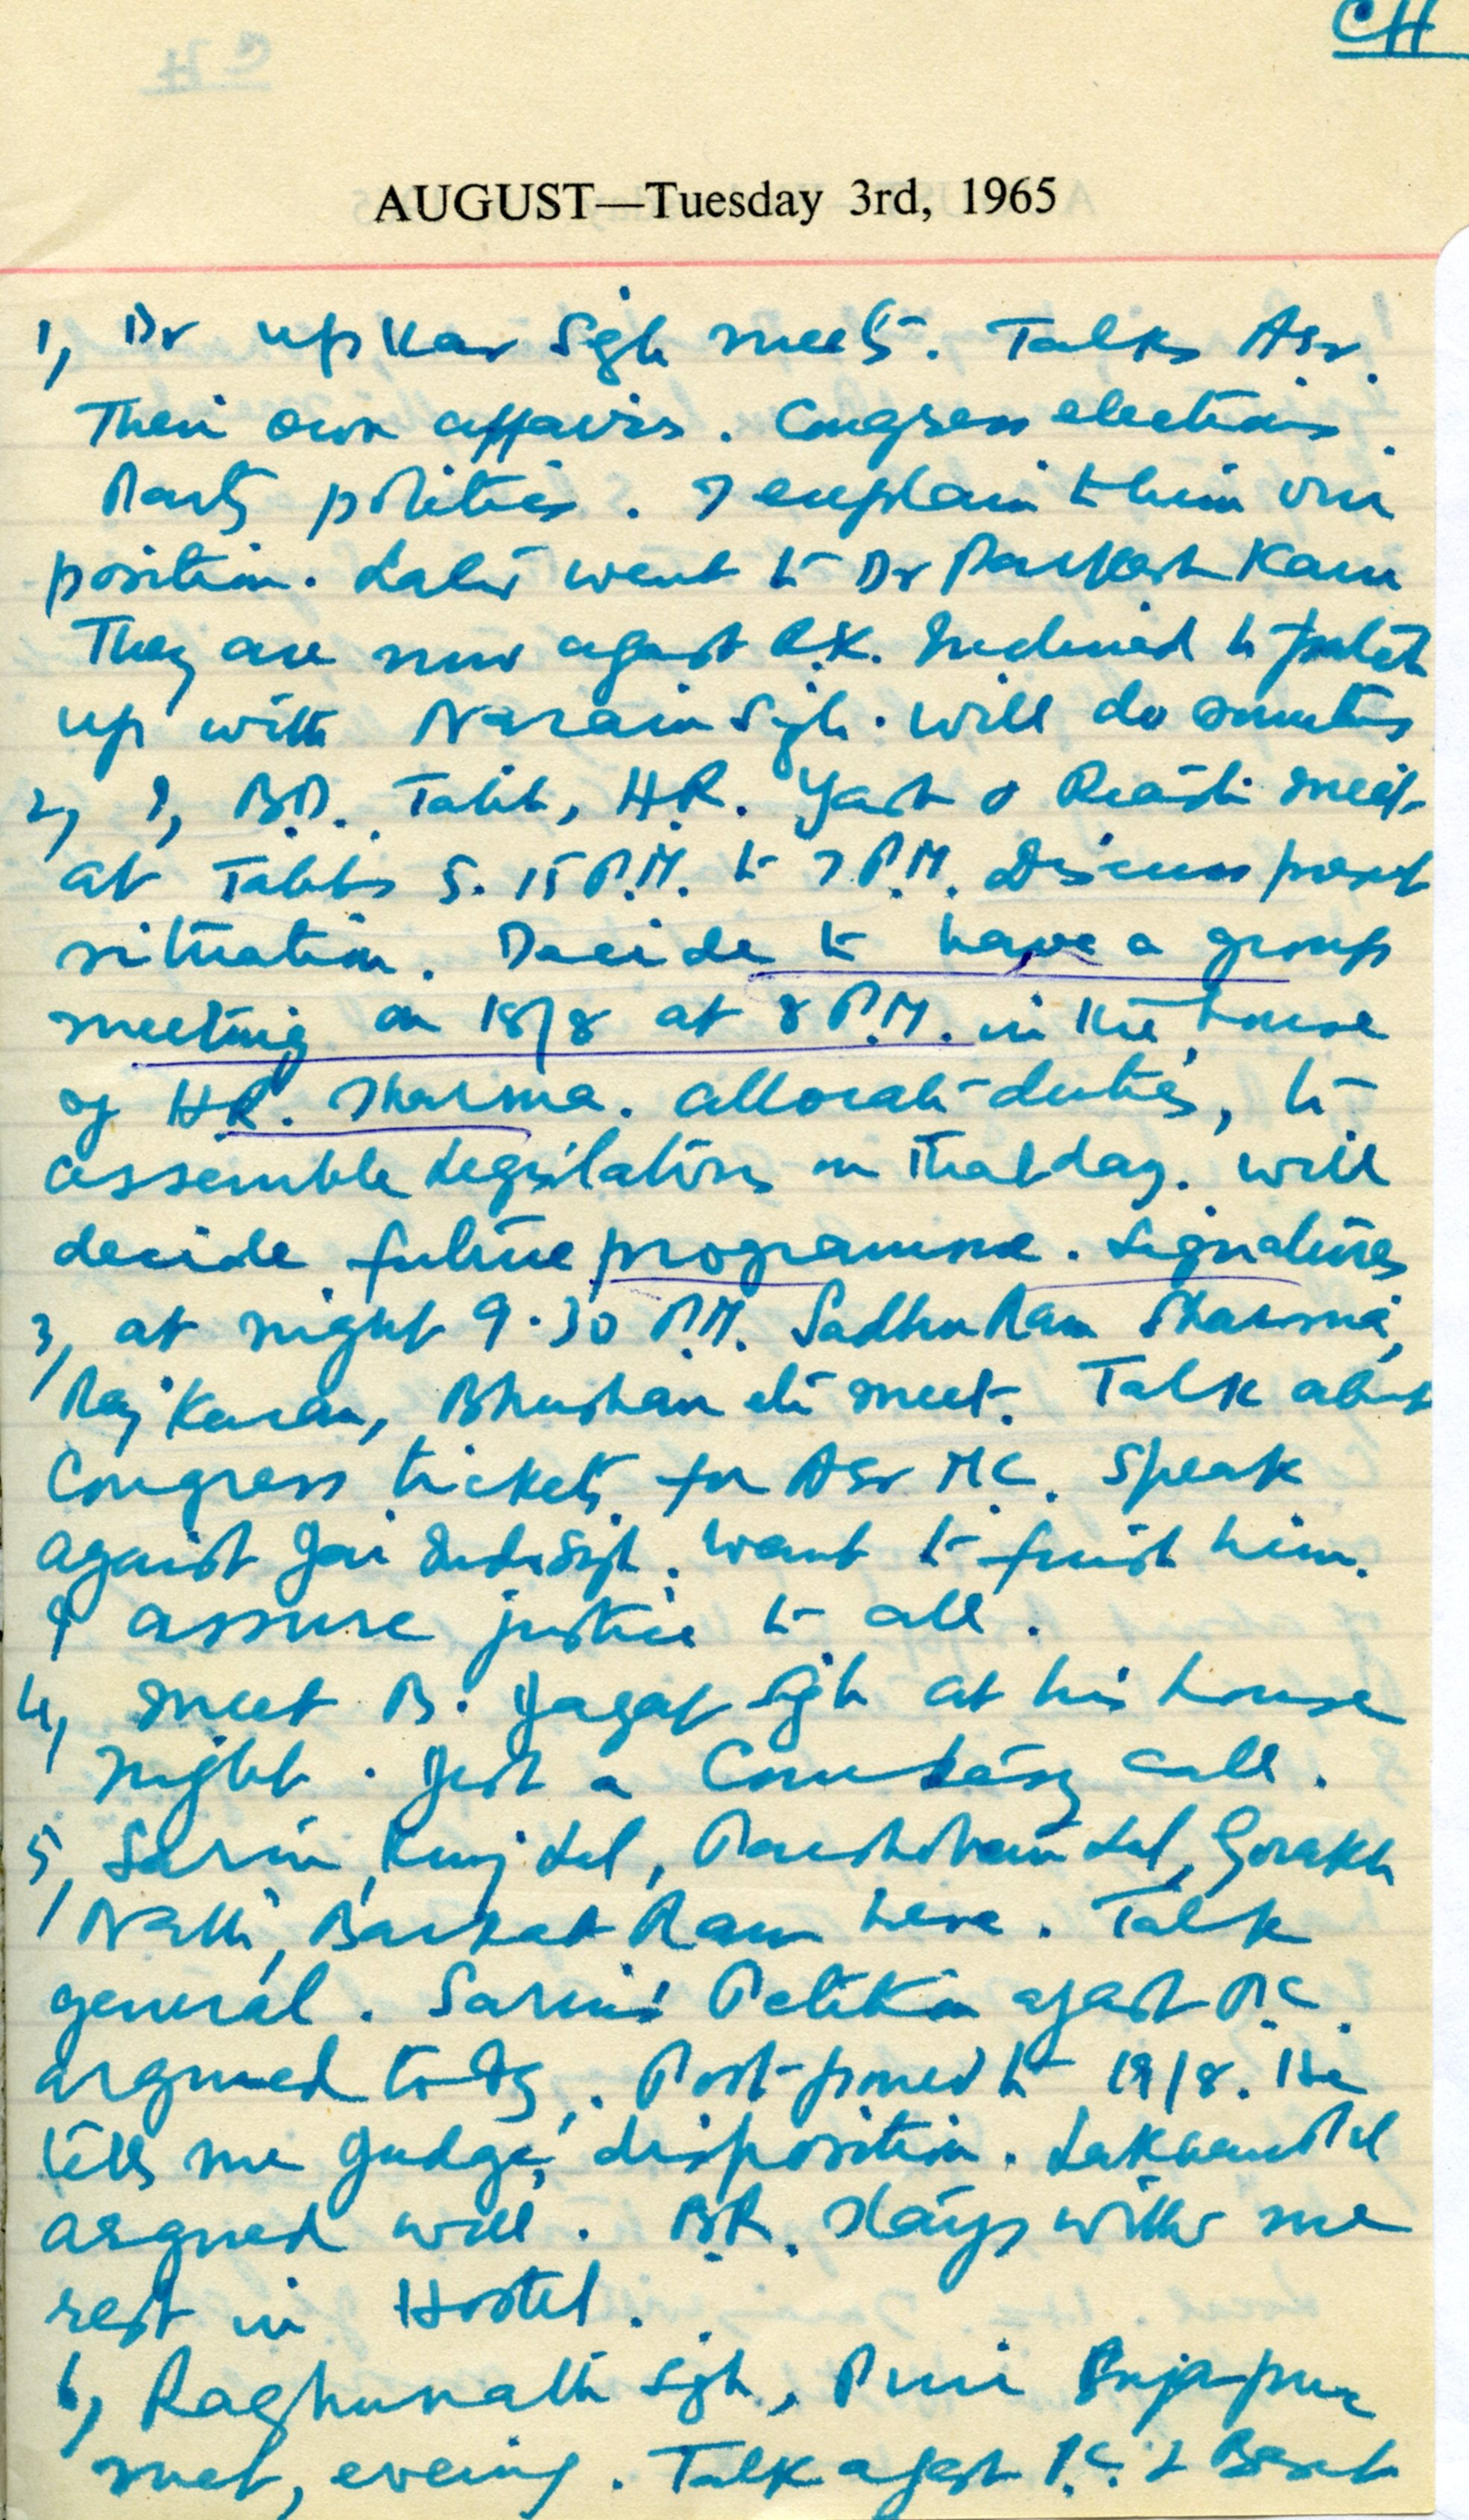 CH
AUGUST—Tuesday 3rd, 1965
1, Dr Upkar Sgh meets. Talks Asr.
Their own affairs. Congress elections.
Party politics. I explain to him our
position. Later went to Dr Parkash Kaur
They are now agast R.K. Inclined to patch
up with Narain Sgh. Will do
2, I, B.D. Talib, H.R. Yash & meet
at Talibs 5.15 P.M. to 7 P.M. Discuss
situation. Decide to have a group
meeting on 18/8 at 8 P.M. in the house
of H.R. Sharma. allocate duties, to
assemble Legislators on that day. will
decide future programme. Signatures
3, at night 9.30 P.M. Sadhu Ram Sharma,
Raj Karan, Bhushan etc meet. Talk about
Congress tickets for Asr M.C. Speak
against Jai Sgh. want to finish him.
I assure justice to all.
4, meet B. Jagat Sgh at his house
night. Just a Courtesy call.
5, Sarin, Kunj Lal, Parshotam Lal, Gorakh
Nath, Barkat Ram here. Talk
general. Sarin's Petition agast P.C.
argued today. Postponed to 19/8. He
tells me Judges' disposition.
argued well. B.R. stays with me
rest in Hostel.
6, Raghunath Sgh, Puri
met, evening. Talk agast P.C. &